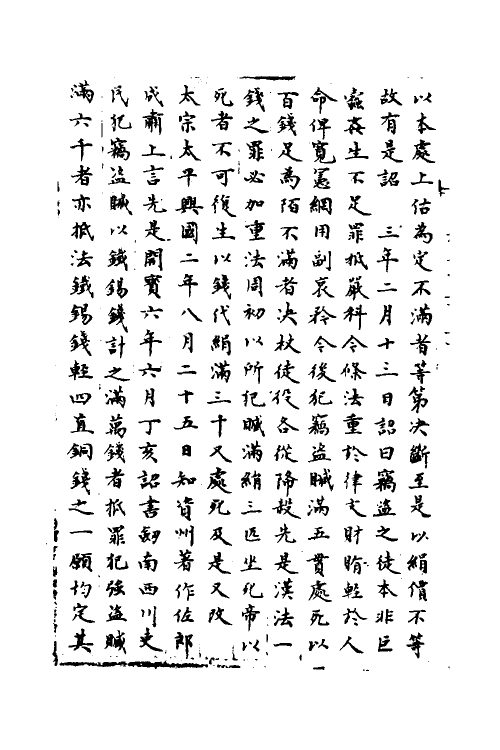 以本處上估為定不滿者等第決斷至是以絹價不等
故有是詔　三年二月十三日詔曰竊盜之徒本非巨
蠹姦生不足罪抵嚴科今條法重於律文財賄輕於人
命俾寬憲網用副哀矜今後犯竊盜贓滿五貫處死以
百錢足為陌不滿者決杖徒役各從降殺先是漢法一
錢之罪必加重法周初以所犯贓滿絹三匹坐死帝以
死者不可復生以錢代絹滿三千又處死及是又改
太宗太平興國二年八月二十五日知資州著作佐郎
成肅上言先是開寶六年六月丁亥詔書劒南西川吏
民犯竊盜贓以鐵錫錢計之滿萬錢者抵罪犯強盜贓
滿六千者亦抵法鐵錫錢輕四直銅錢之一願均定其